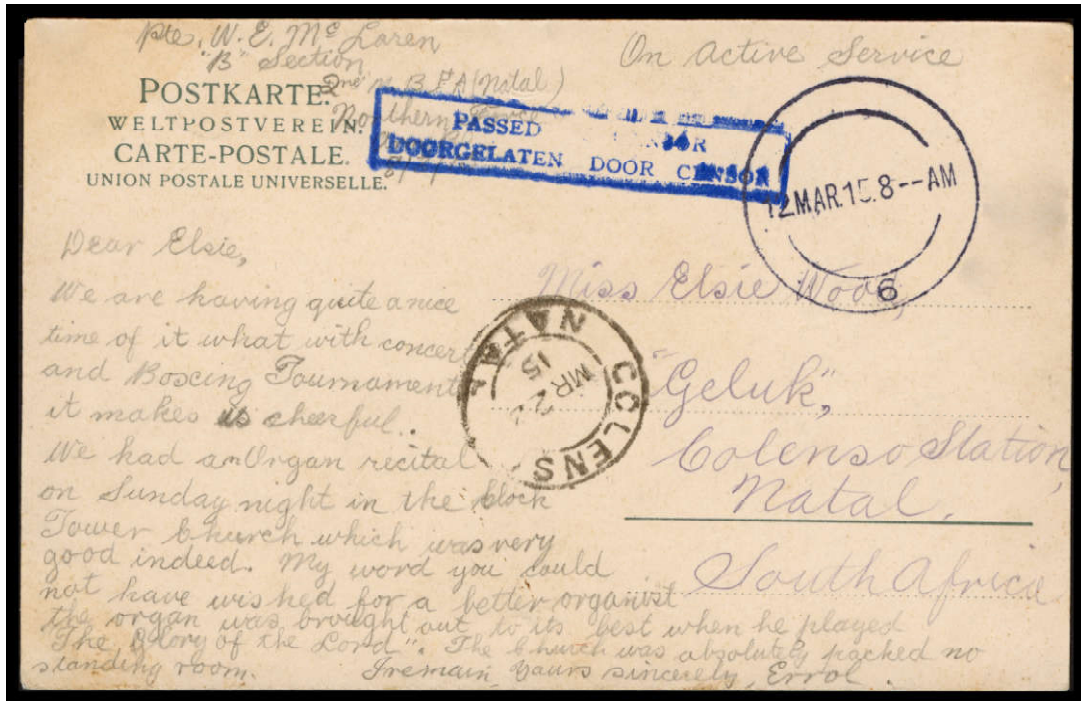 Pte. W. E. Mc Laren
"B" Section
2nd M B F A (Natal)
Northern Force
On Active Service
POSTKARTE.
WELTPOSTVEREIN.
CARTE-POSTALE.
UNION POSTALE UNIVERSELLE.
PASSED
DOORGELATEN DOOR CENSOR
12 MAR. 15. 8 -- AM
6
Dear Elsie,
We are having quite a nice
time of it what with concert
and Boxing Tournament
it makes us cheerful.
We had an Organ recital
on Sunday night in the Clock
Tower Church which was very
good indeed. My word you could
not have wished for a better organist
the organ was brought out to its best when he played
"The Glory of the Lord". The Church was absolutely packed no
standing room. I remain Yours sincerely, Errol.
COLENS
NATAL
15
MR
Miss Elsie Wood,
"Geluk",
Colenso Station,
Natal.
South Africa